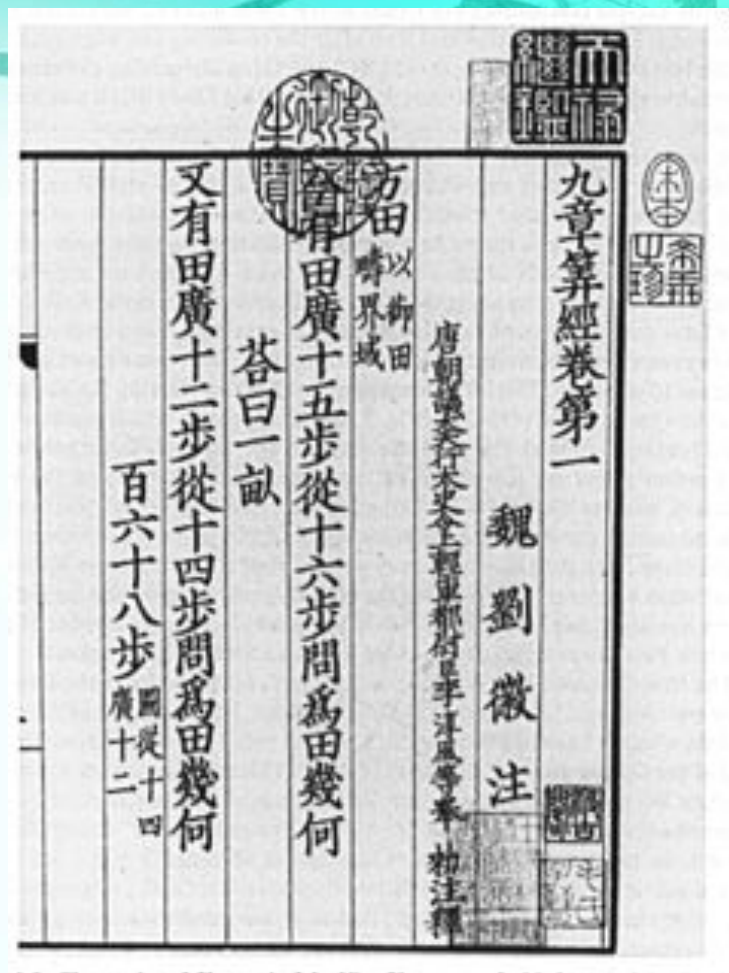 九章算經卷第一
魏劉徽注
唐朝議大夫行太史令上輕車都尉臣李淳風等奉勑注釋
方田以御田疇界域
今有田廣十五步從十六步問爲田幾何
荅曰一畝
又有田廣十二步從十四步問爲田幾何
百六十八步圖從十四廣十二